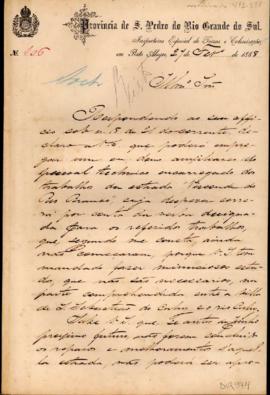 Provincia de S. Pedro do Rio Grande do Sul.
Inspectoria Especial de Terras e Colonisação,
em Porto Alegre, 27 de Fev.º de 1888
Nº 206
Illmo. Snr.
Respondendo ao seu offi-
cio sob nº 8 de 21 do corrente, de-
claro a V. S. que poderá empre-
gar um ou dous auxiliares do
pessoal technico encarregado dos
trabalhos da estrada
Rio Branco, cuja despeza corre-
rá por conta da verba designa-
da para os referidos trabalhos,
que segundo me consta, ainda
não começaram, porque V. S. tem
mandado fazer minuciosos estu-
dos, que não são necessarios, na
parte comprehendida entre a villa
de S. Sebastião do Cahy e o rio Cahy.
que
proximo futuro não forem concluidos
os reparos e melhoramentos d'aquel-
la estrada, não poderá ser apro-